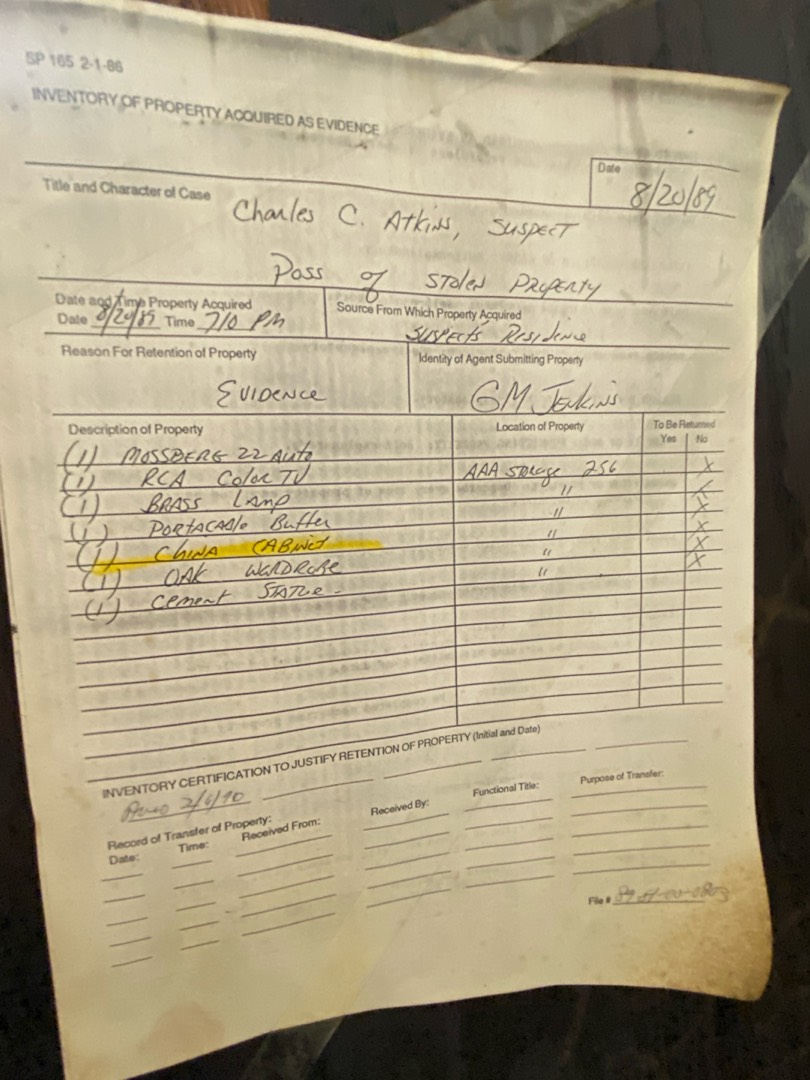 SP 165 2-1-86
INVENTORY OF PROPERTY ACQUIRED AS EVIDENCE
Date
8/20/89
Title and Character of Case
Charles C. Atkins, Suspect
Poss of Stolen Property
Date and Time Property Acquired
Date 8/20/89 Time 710 PM
Source From Which Property Acquired
Suspects Residence
Reason For Retention of Property
Evidence
Identity of Agent Submitting Property
GM Jenkins
Description of Property
Location of Property
To Be Returned
Yes No
(1) MOSSBERG 22 Auto
(1) RCA Color TV AAA Storage 256 X
(1) BRASS LAMP " X
(1) PORTACABLE Buffer " X
(1) CHINA CABINET " X
(1) OAK WARDROBE " X
(1) Cement STATUE - " X
INVENTORY CERTIFICATION TO JUSTIFY RETENTION OF PROPERTY (Initial and Date)
2/6/90
Record of Transfer of Property:
Date: Time: Received From: Received By: Functional Title: Purpose of Transfer:
File #